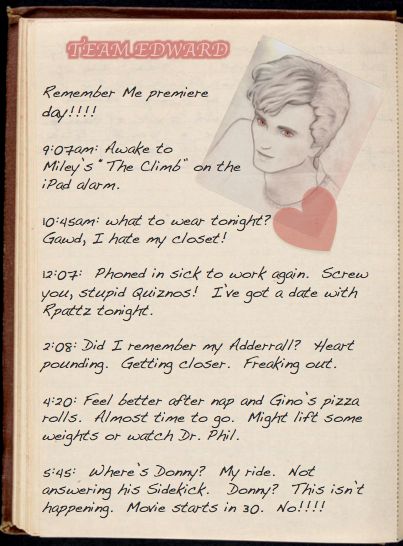 TEAM EDWARD
Remember Me premiere
day!!!!
9:07am: Awake to
Miley's "The Climb" on the
iPad alarm.
10:45am: what to wear tonight?
Gawd, I hate my closet!
12:07: Phoned in sick to work again. Screw
you, stupid Quiznos! I've got a date with
Rpattz tonight.
2:08: Did I remember my Adderrall? Heart
pounding. Getting closer. Freaking out.
4:20: Feel better after nap and Gino's pizza
rolls. Almost time to go. Might lift some
weights or watch Dr. Phil.
5:45: Where's Donny? My ride. Not
answering his Sidekick. Donny? This isn't
happening. Movie starts in 30. No!!!!